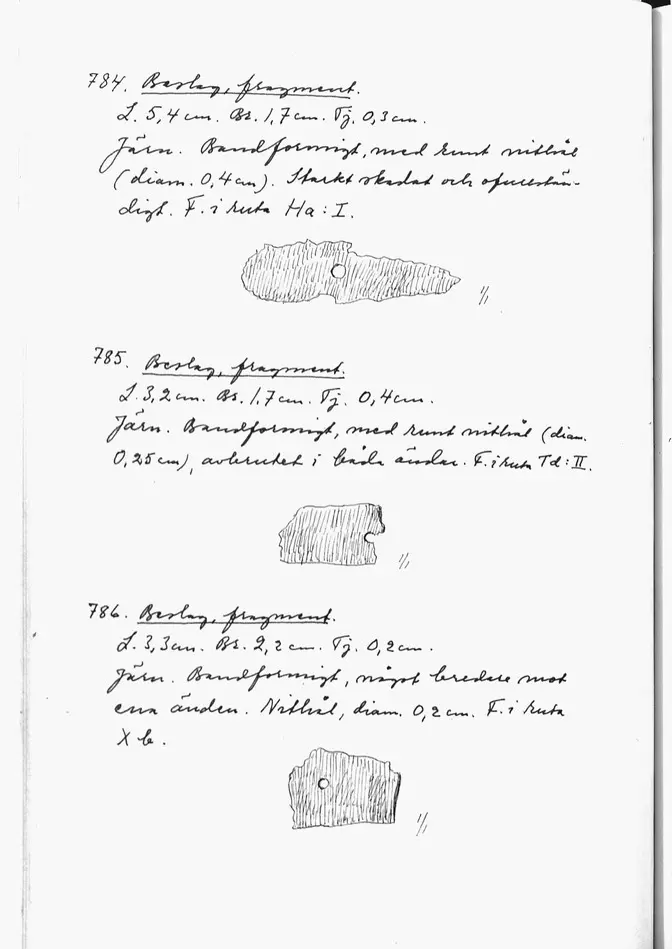 784. Beslag, fragment.
L. 5,4 cm. Br. 1,7 cm. Tj. 0,3 cm.
Järn. Bandformigt, med runt nithål
(diam. 0,4 cm). Starkt skadat och ofullstän-
digt. F. i ruta Ha : I.
1/1
785. Beslag, fragment.
L. 3,2 cm. Br. 1,7 cm. Tj. 0,4 cm.
Järn. Bandformigt, med runt nithål (diam.
0,25 cm), avbrutet i båda ändar. F. i ruta Td : II.
1/1
786. Beslag, fragment.
L. 3,3 cm. Br. 2,2 cm. Tj. 0,2 cm.
Järn. Bandformigt, något bredare mot
ena änden. Nithål, diam. 0,2 cm. F. i ruta
X b.
1/1